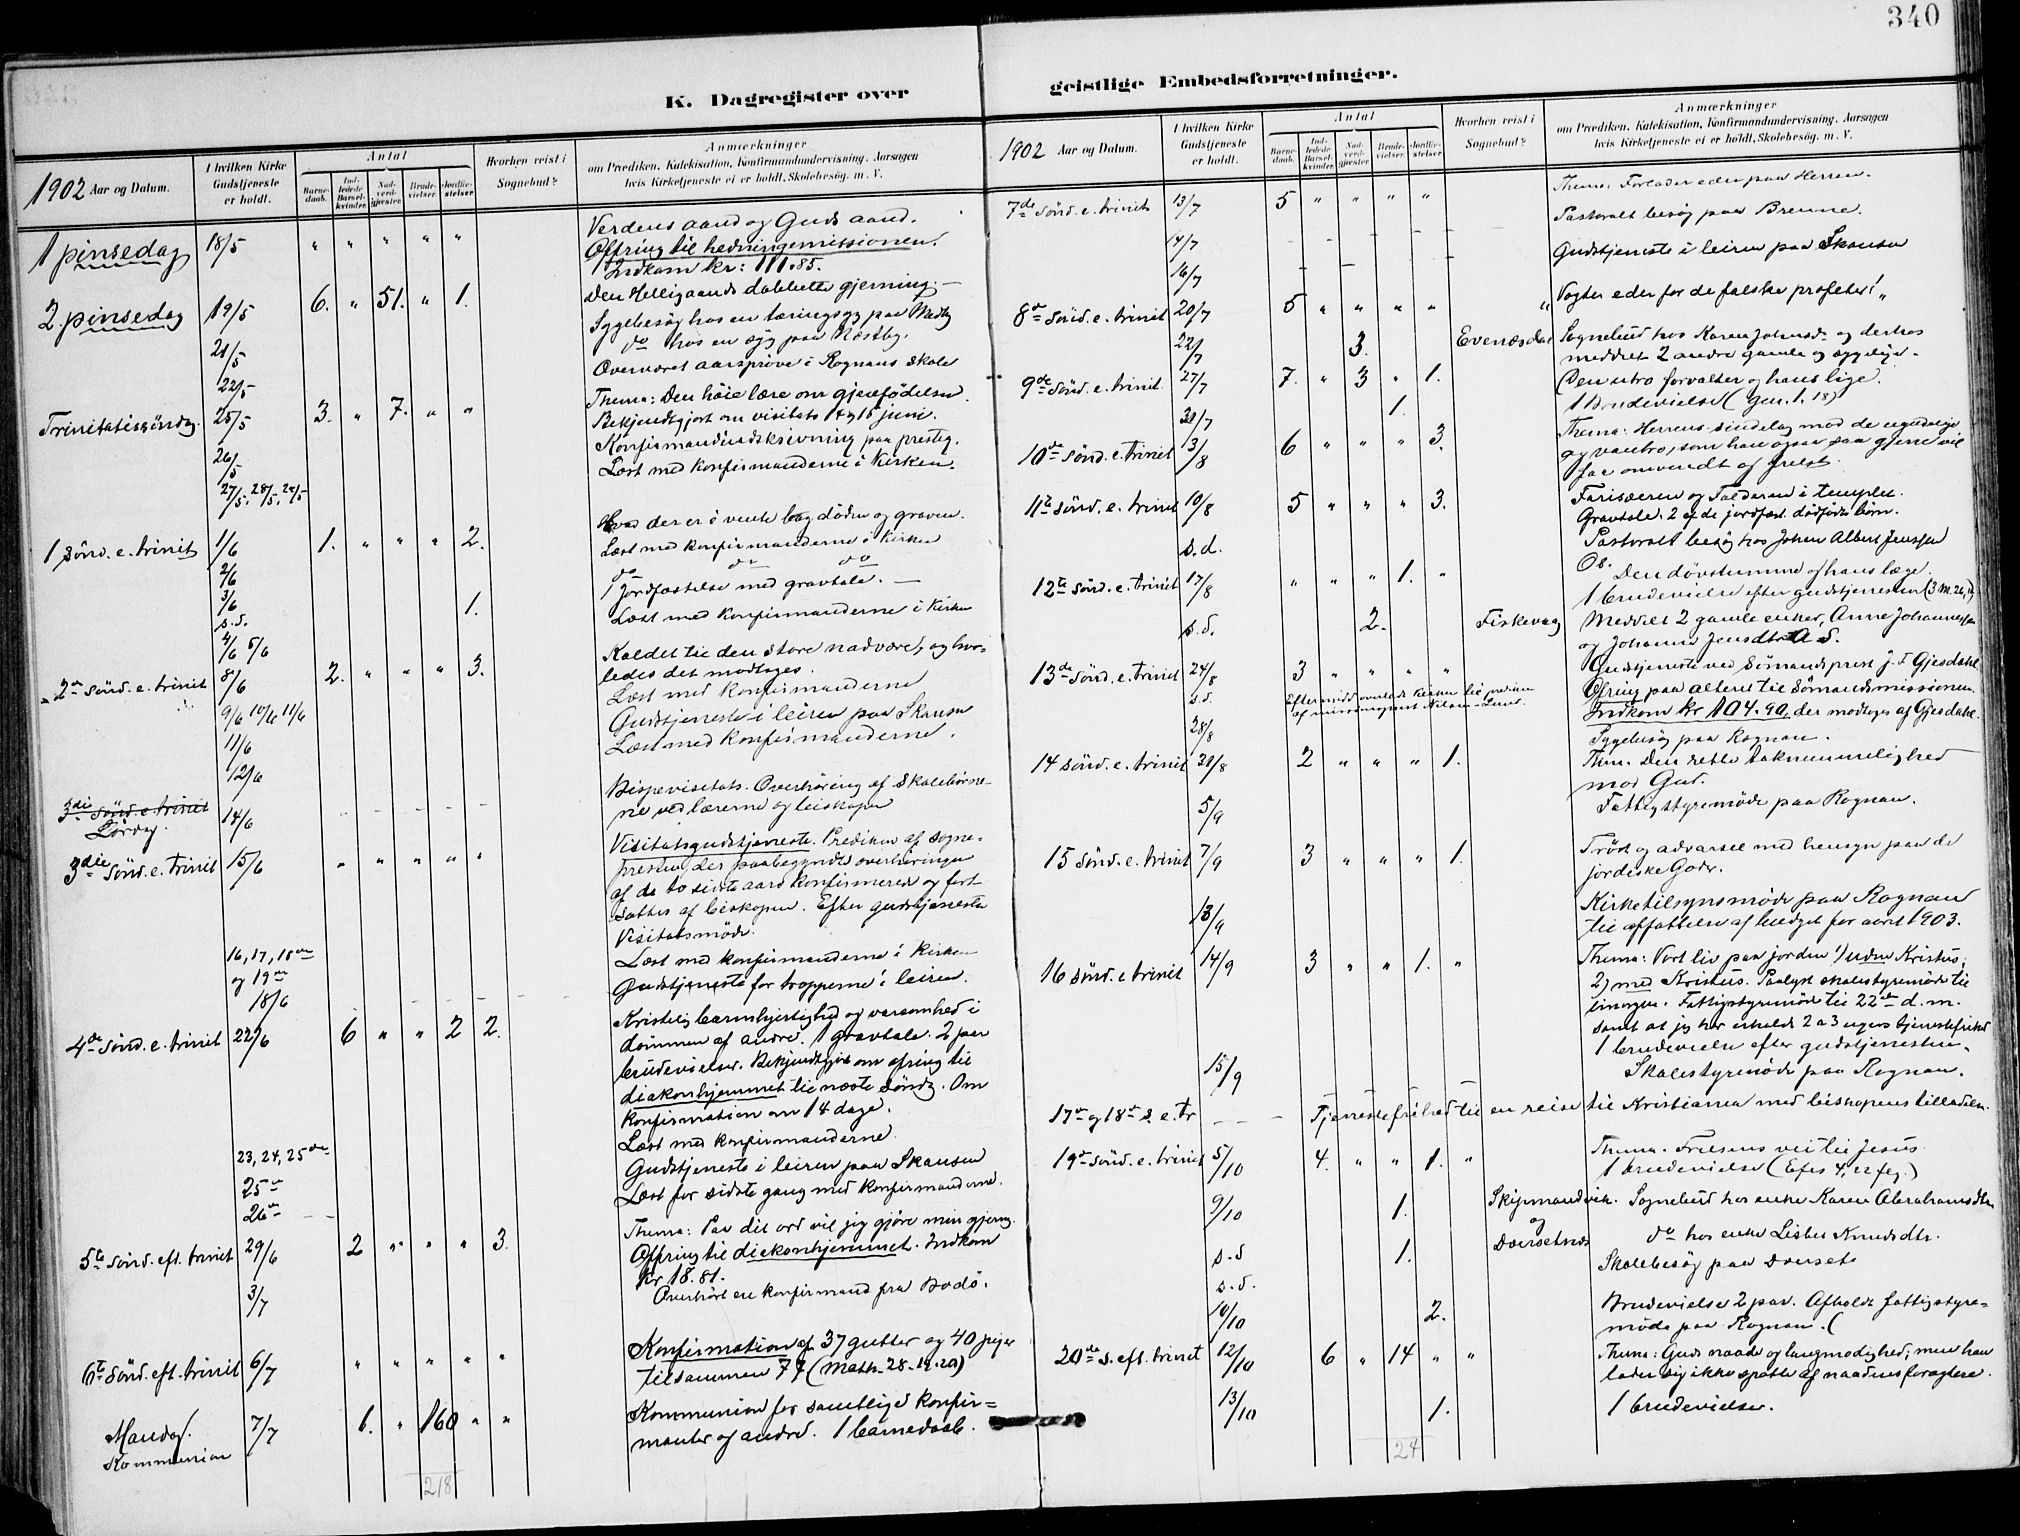 340
K. Dagregister over
geistlige Embedsforretninger.
1902 Aar og Datum.
I hvilken Kirke Gudstjeneste er holdt.
Antal
Barnedaab.
Indledede Barselkvinder.
Nadverdgjæster.
Brudevielser.
Jordfæstelser.
Hvorhen reist i Sognebud?
Anmærkninger
om Prædiken, Katekisation, Konfirmandundervisning, Aarsagen
hvis Kirketjeneste ei er holdt, Skolebesøg. m. V.
1 pinsedag 18/5 " " " " " Verdens aand og Guds aand.
Offring til hedningemissionen.
Indkom kr: 111.85.
2 pinsedag 19/5 6. " 51. " 1. Den Helligaands dobbelte gjerning. —
Sygebesøg hos en tæringssyg paa
21/5 do hos en syg paa Næstby.
22/5 Overværet aarsprøve i Rognans skole
Trinitatissøndag 25/5 3. " 7. " " Thema: Den høie lære om gjenfødelsen
Bekjendtgjort om visitats 14 og 15 juni.
26/5 Konfirmandindskrivning paa presteg.
27/5, 28/5, 29/5 Læst med konfirmanderne i Kirken.
1 sønd. e. trinit 1/6 1. " " " 2. Hvad der er i vente bag døden og graven.
2/6 Læst med konfirmanderne i Kirken
3/6 do do do
s.d. 1. 1 Jordfæstelse med gravtale. —
4/6 5/6 Læst med konfirmanderne i Kirken
2den sønd. e. trinit 8/6 2. " " " 3. Kaldet til den store nadvere, og hvor-
ledes det modtages.
9/6 10/6 11/6 Læst med konfirmanderne
11/6 Gudstjeneste i leiren paa Skansen
12/6 Læst med konfirmanderne.
3die sønd. e. trinit
Lørdag. 14/6 Bispevisitats. Overhøring af Skolebørne-
ne ved lærerne og biskopen
3die sønd. e. trinit 15/6 " " " " " Visitatsgudstjeneste. Prediken af sogne-
presten, der paabegyndte overhøringen
af de to sidste aars konfirmerede og fort-
sattes af biskopen. Efter gudstjenesten
Visitatsmøde.
16, 17, 18de og 19de Læst med konfirmanderne i Kirken
18/6 Gudstjeneste for tropperne i leiren.
4de sønd. e. trinit 22/6 6 " " 2 2. Kristelig barmhjertighed og varsomhed i
dømmen af andre. 1 gravtale. 2 par
brudevielser. Bekjendtgjort om ofring til
diakonhjemmet til næste søndg. Om
konfirmation om 14 dage.
23, 24, 25de Læst med konfirmanderne
25de Gudstjeneste i leiren paa Skansen
26de Læst for sidste gang med konfirmanderne.
5te sønd. eft. trinit 29/6 2 " " " 3. Thema: Paa dit ord vil jeg gjøre min gjerng.
Offring til diakonhjemmet. Indkom
Kr 18.81.
3/7 Overhørt en konfirmand fra Bodø.
6te sønd. eft. trinit 6/7 " " " " " Konfirmation af 37 gutter og 40 piger
tilsammen 77 (Math. 28. 19.20)
Mandag.
Kommunion 7/7 1. " 160 " " Kommunion for samtlige konfir-
manter og andre. 1 barnedaab.
218
1902 Aar og Datum.
I hvilken Kirke Gudstjeneste er holdt.
Antal
Barnedaab.
Indledede Barselkvinder.
Nadverdgjæster.
Brudevielser.
Jordfæstelser.
Hvorhen reist i Sognebud?
Anmærkninger
om Prædiken, Katekisation, Konfirmandundervisning, Aarsagen
hvis Kirketjeneste ei er holdt, Skolebesøg. m. V.
7de sønd. e. trinit 13/7 5 " " " " Thema: Forlader eder paa Herren.
14/7 Pastoralt besøg paa Brenne.
16/7 Gudstjeneste i leiren paa Skansen
8de sønd. e. trinit 20/7 5 " " " " „Vogter eder for de falske profeter!„
22/7 3. Evenæsdal Sognebud hos Karen Johnsd. og derhos
meddelt 2 andre gamle og sygelige.
9de sønd. e. trinit 27/7 7. " 3 " 1. Den utro forvalter og hans lige.
30/7 1. 1 Brudevielse (Gen. 1. 18)
10de sønd. e. trinit 3/8 6 " " " 3. Thema: Herrens sindelag mod de ugudelige
og vantro, som han ogsaa saa gjerne vil
faa omvendt og frelst.
11te sønd. e. trinit 10/8 5 " " " 3. Farisæeren og Tolderen i templet.
Gravtale. 2 af de jordfæst. dødfødte børn.
s.d. Pastoralt besøg hos Johan Albert Jenssen
12te sønd. e. trinit 17/8 " " " 1. " Den døvstumme og hans læge.
1 brudevielse efter gudstjenesten (3 M. 26,
s.d. 2. Fiskevaag Meddelt 2 gamle enker, Anne Johannesen
og Johanna Jensdtr S.
13de sønd. e. trinit 24/8 3 " " " " Gudstjeneste ved Sømandsprest J. F Gjesdahl.
s.d. Eftermidd overlodt kirken til
af missionsprest Nilsen-Lund. Ofring paa alteret til sømandsmissionen.
Indkom kr 104.90, der modtoges af Gjesdahl.
28/8 Sygebesøg paa Rognan.
14 sønd. e. trinit 31/8 2 " " " 1. Thm. Den rette taknemmelighed
mod Gud.
5/9 Fattigstyremøde paa Rognan.
15 sønd. e. trinit 7/9 3 " " " 1. Trøst og advarsel med hensyn paa de
jordiske Goder.
13/9 Kirketilsynsmøde paa Rognan
til affattelse af budget for aaret 1903.
16 sønd. e trinit 14/9 3 " " 1. " Thema: Vort liv paa jorden 1) uden Kristus,
2) med Kristus. Paalyst skolestyremøde til
imorgen. Fattigstyremøde til 22de d. m.
samt at jeg har erholdt 2 a 3 ugers tjenestefrihed
1 brudevielse efter gudstjenesten.
15/9 Skolestyremøde paa Rognan.
17de og 18de s. e. tr Tjenestefrihed til en reise til Kristiania med biskopens tilladelse.
19de sønd. e. trinit 5/10 4. " " 1. " Thema: Frelsens vei til Jesus.
1 brudevielse (Efes 4, 22 fg.)
9/10 1. Skipmandvik. Sognebud hos enke Karen Abrahamsdtr
og
s.d 1. Daersetnæs do hos enke Lisbet Knudsdtr.
s.d. Skolebesøg paa Daerset
10/10 2. Brudevielse 2 par. Afholdt fattigstyre-
møde paa Rognan. (
20de s. eft. trinit 12/10 6 " 14 " " Thema: Guds naade og langmodighed; men han
lader sig ikke spotte af naadens foragtere.
13/10 1. 1 brudevielse.
24